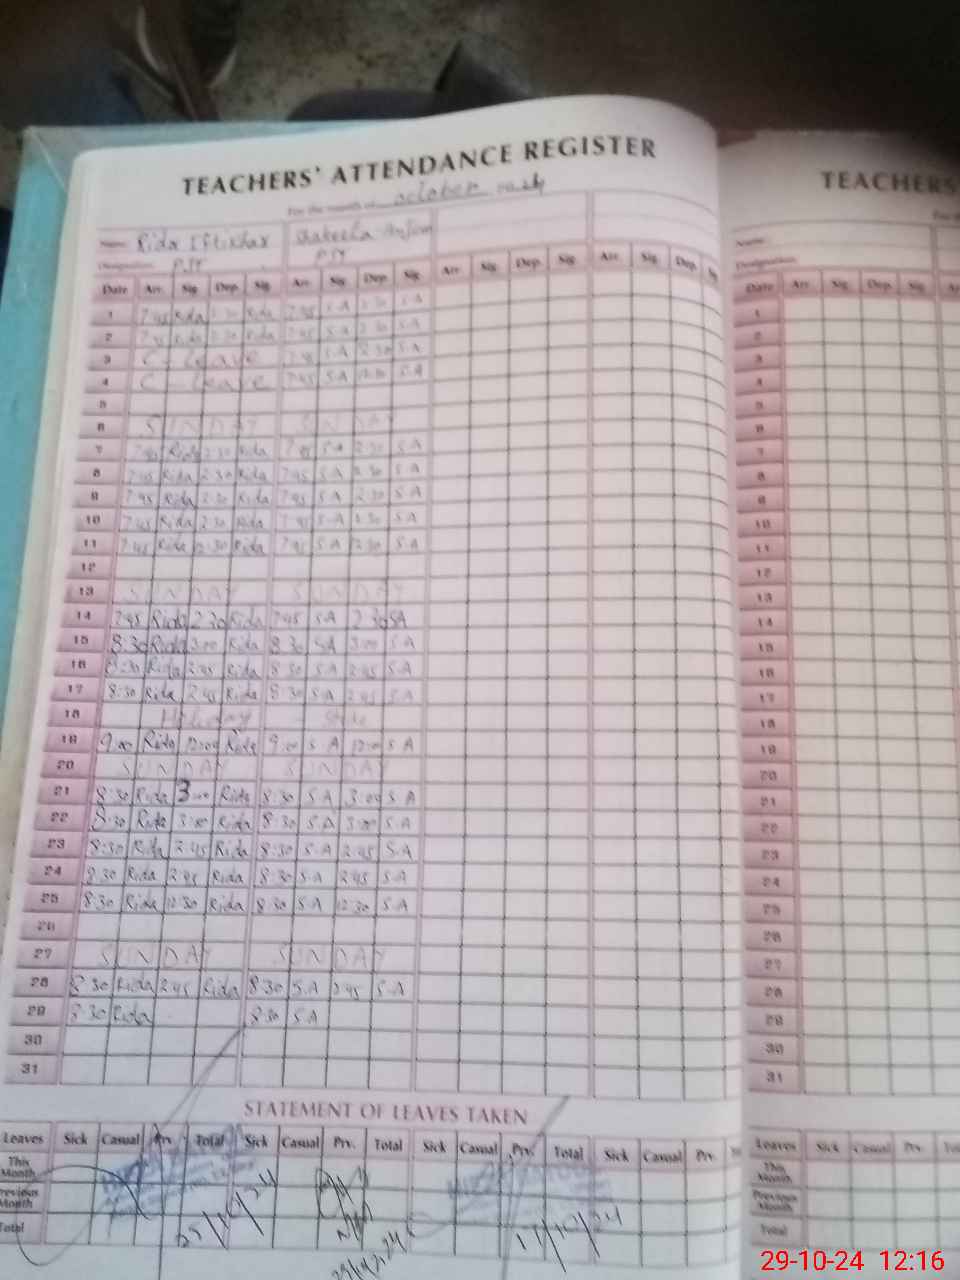 TEACHERS' ATTENDANCE REGISTER
For the month of october
Name Rida Iftikhar Shakeela Anjum
Designation PST PST
Date Arr. Sig. Dep. Sig. Arr. Sig. Dep. Sig. Arr. Sig. Dep. Sig. Arr. Sig. Dep. Sig.
1 7:45 Rida 2:30 Rida 7:45 S.A 2:30 S.A
2 7:45 Rida 2:30 Rida 7:45 S.A 2:30 S.A
3 C - leave 7:45 S.A 2:30 S.A
4 C - leave 7:45 S.A 12:30 S.A
5
6 SUNDAY SUNDAY
7 7:45 Rida 2:30 Rida 7:45 S.A 2:30 S.A
8 7:45 Rida 2:30 Rida 7:45 S.A 2:30 S.A
9 7:45 Rida 2:30 Rida 7:45 S.A 2:30 S.A
10 7:45 Rida 2:30 Rida 7:45 S.A 2:30 S.A
11 7:45 Rida 12:30 Rida 7:45 S.A 12:30 S.A
12
13 SUNDAY SUNDAY
14 7:45 Rida 2:30 Rida 7:45 S.A 2:30 SA
15 8:30 Rida 3:00 Rida 8:30 SA 3:00 S.A
16 8:30 Rida 2:45 Rida 8:30 S.A 2:45 S.A
17 8:30 Rida 2:45 Rida 8:30 S.A 2:45 S.A
18 Holiday
19 9:00 Rida 12:00 Rida 9:00 S.A 12:00 S.A
20 SUNDAY SUNDAY
21 8:30 Rida 3:00 Rida 8:30 S.A 3:00 S.A
22 8:30 Rida 3:00 Rida 8:30 S.A 3:00 S.A
23 8:30 Rida 2:45 Rida 8:30 S.A 2:45 S.A
24 8:30 Rida 2:45 Rida 8:30 S.A 2:45 S.A
25 8:30 Rida 12:30 Rida 8:30 S.A 12:30 S.A
26
27 SUNDAY SUNDAY
28 8:30 Rida 2:45 Rida 8:30 S.A 2:45 S.A
29 8:30 Rida 8:30 S.A
30
31
STATEMENT OF LEAVES TAKEN
Leaves Sick Casual Prv. Total Sick Casual Prv. Total Sick Casual Prv. Total Sick Casual Prv.
This Month
Previous Month
Total
TEACHERS'
Name
Designation
Date Arr. Sig. Dep. Sig.
1
2
3
4
5
6
7
8
9
10
11
12
13
14
15
16
17
18
19
20
21
22
23
24
25
26
27
28
29
30
31
Leaves Sick Casual Prv.
This Month
Previous Month
Total
29-10-24 12:16